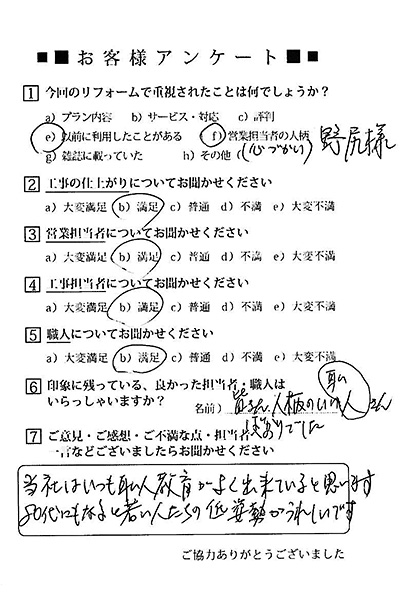 ■■お客様アンケート■■
1 今回のリフォームで重視されたことは何でしょうか？
a）プラン内容 b）サービス・対応 c）評判
e）以前に利用したことがある f）営業担当者の人柄 野尻様
g）雑誌に載っていた h）その他（心づかい）
2 工事の仕上がりについてお聞かせください
a）大変満足 b）満足 c）普通 d）不満 e）大変不満
3 営業担当者についてお聞かせください
a）大変満足 b）満足 c）普通 d）不満 e）大変不満
4 工事担当者についてお聞かせください
a）大変満足 b）満足 c）普通 d）不満 e）大変不満
5 職人についてお聞かせください
a）大変満足 b）満足 c）普通 d）不満 e）大変不満
6 印象に残っている、良かった担当者・職人は
いらっしゃいますか？ 名前） 皆さん、人柄のいい職人さん
ばかりでした
7 ご意見・ご感想・ご不満な点・担当者
一言などございましたらお聞かせください
当社はいつも職人教育がよく出来ていると思います
80代にもなると若い人たちの低姿勢がうれしいです
ご協力ありがとうございました